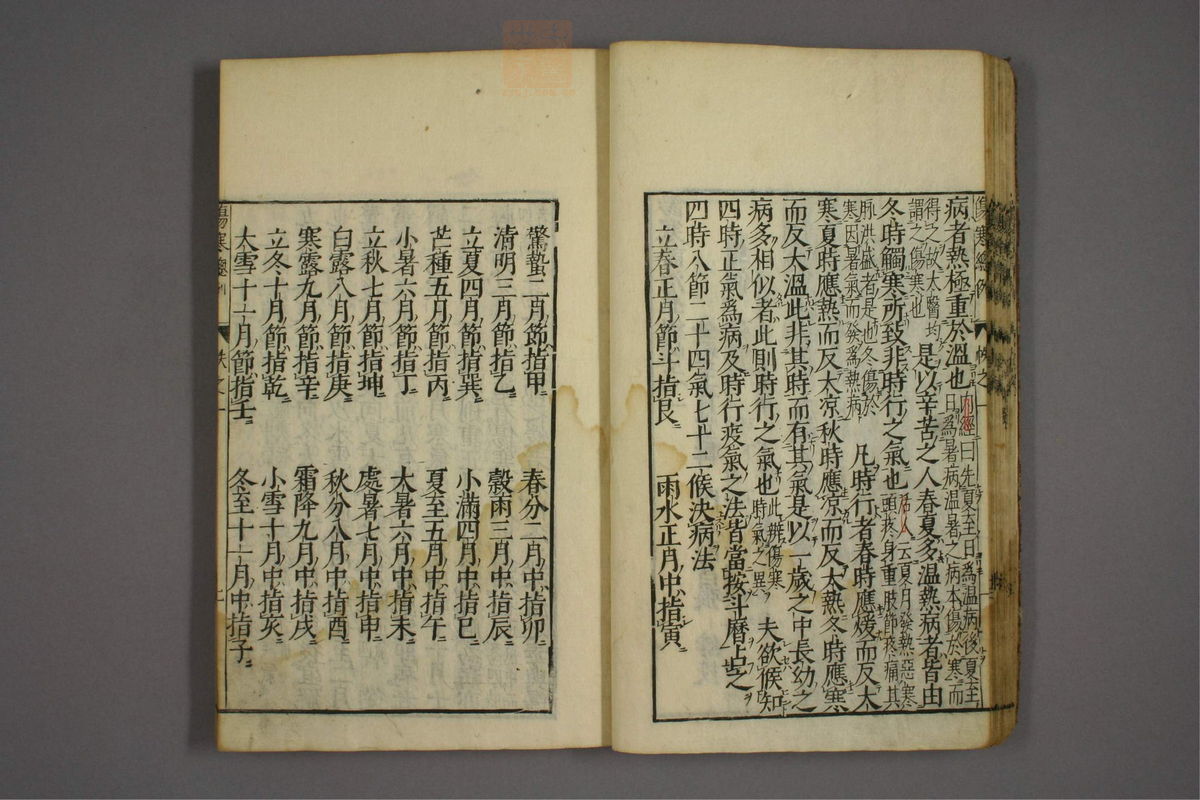 病者熱極重於溫也內經曰先夏至日爲溫病後夏至
日爲暑病溫暑之病本傷於寒而
得之故太醫均
謂之傷寒也
是以辛苦之人春夏多溫熱病者皆由
冬時觸寒所致非時行之氣也活人云夏月發熱惡寒
頭疼身重肢節疼痛其
脉洪盛者是也冬傷於
寒因暑氣而發爲熱病
凡時行者春時應煖而反大
寒夏時應熱而反大凉秋時應凉而反大熱冬時應寒
而反大溫此非其時而有其氣是以一歲之中長幼之
病多相似者此則時行之氣也此辨傷寒
時氣之異
夫欲候知
四時正氣爲病及時行疫氣之法皆當按斗曆占之
四時八節二十四氣七十二候決病法
立春正月節斗指艮 雨水正月中指寅
驚蟄二月節指甲 春分二月中指卯
清明三月節指乙 穀雨三月中指辰
立夏四月節指巽 小滿四月中指巳
芒種五月節指丙 夏至五月中指午
小暑六月節指丁 大暑六月中指未
立秋七月節指坤 處暑七月中指申
白露八月節指庚 秋分八月中指酉
寒露九月節指辛 霜降九月中指戌
立冬十月節指乾 小雪十月中指亥
大雪十一月節指壬 冬至十一月中指子